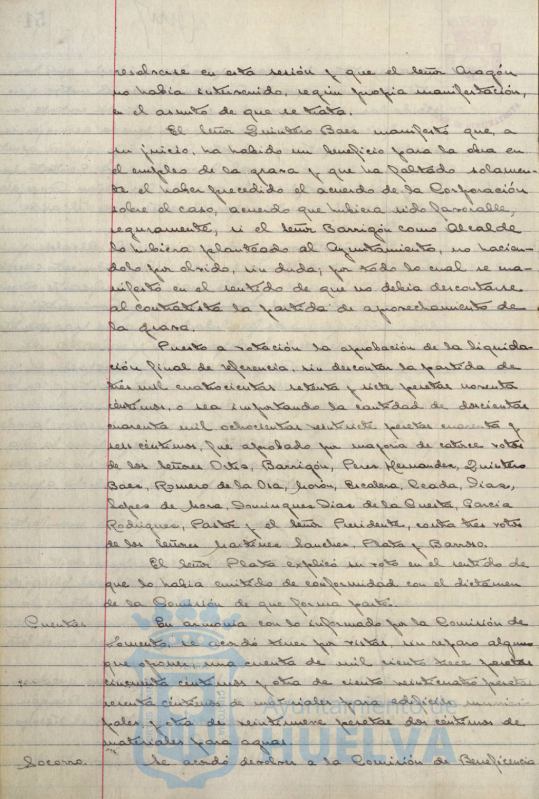 resolverse en esta sesión y que el Señor Aragón
no había intervenido, según propia manifestación,
en el asunto de que se trata.
El Señor Quintero Baez manifestó que, a
su juicio, ha habido un beneficio para la obra en
el empleo de la grava y que ha faltado solamen-
te el haber precedido el acuerdo de la Corporación
sobre el caso, acuerdo que hubiera sido favorable,
seguramente, si el Señor Barrigón como Alcalde
lo hubiera planteado al Ayuntamiento, no hacien-
dolo por olvido, sin duda; por todo lo cual se ma-
nifestó en el sentido de que no debía descontarse
al contratista la partida de aprovechamiento de
la grava.
Puesto a votación la aprobación de la liquida-
ción final de referencia, sin descontar la partida de
tres mil cuatrocientas setenta y siete pesetas noventa
céntimos, o sea importando la cantidad de doscientas
cuarenta mil ochocientas veintisiete pesetas cuarenta y
seis céntimos, fué aprobado por mayoría de catorce votos
de los Señores Ortiz, Barrigón, Perez Hernandez, Quintero
Baez, Romero de la Osa, Morón, Escalera, Diaz,
Lopez de Mora, Dominguez Diaz de la Cuesta, Garcia
Rodriguez, Pastor y el Señor Presidente, contra tres votos
de los Señores Martinez Sanchez, Plata y Barroso.
El Señor Plata explicó su voto en el sentido de
que lo había emitido de conformidad con el dictamen
de la Comisión de que forma parte.
Cuentas. En armonía con lo informado por la Comisión de
Fomento, se acordó tener por vistas, sin reparo alguno
que oponer, una cuenta de mil ciento trece pesetas
cincuenta céntimos y otra de ciento veinticuatro pesetas
sesenta céntimos de materiales para edificios munici-
pales, y otra de veintinueve pesetas dos céntimos de
materiales para aguas.
Socorro. Se acordó devolver a la Comisión de Beneficencia
Ayuntamiento de
HUELVA